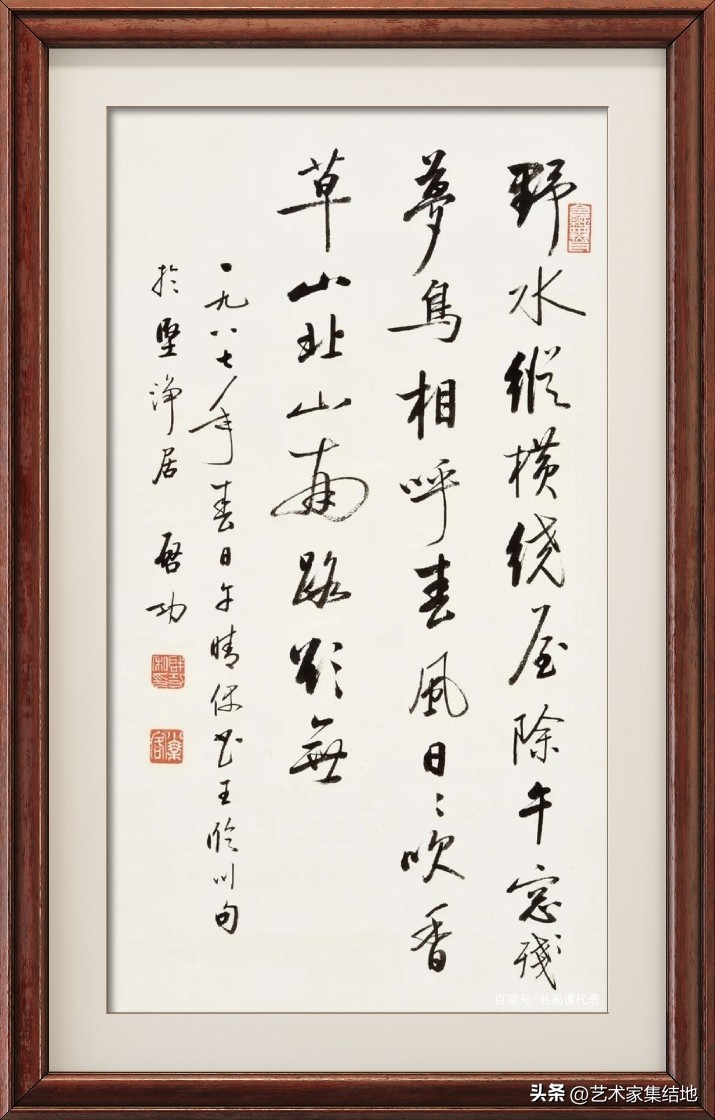 野水縱橫繞屋除午窓殘
夢鳥相呼春風日〻吹香
草山北山南路欲無
一九八七年春日午晴偶書王臨川句
於堅淨居 啟功
百家号/书画课代表
头条 @艺术家集结地